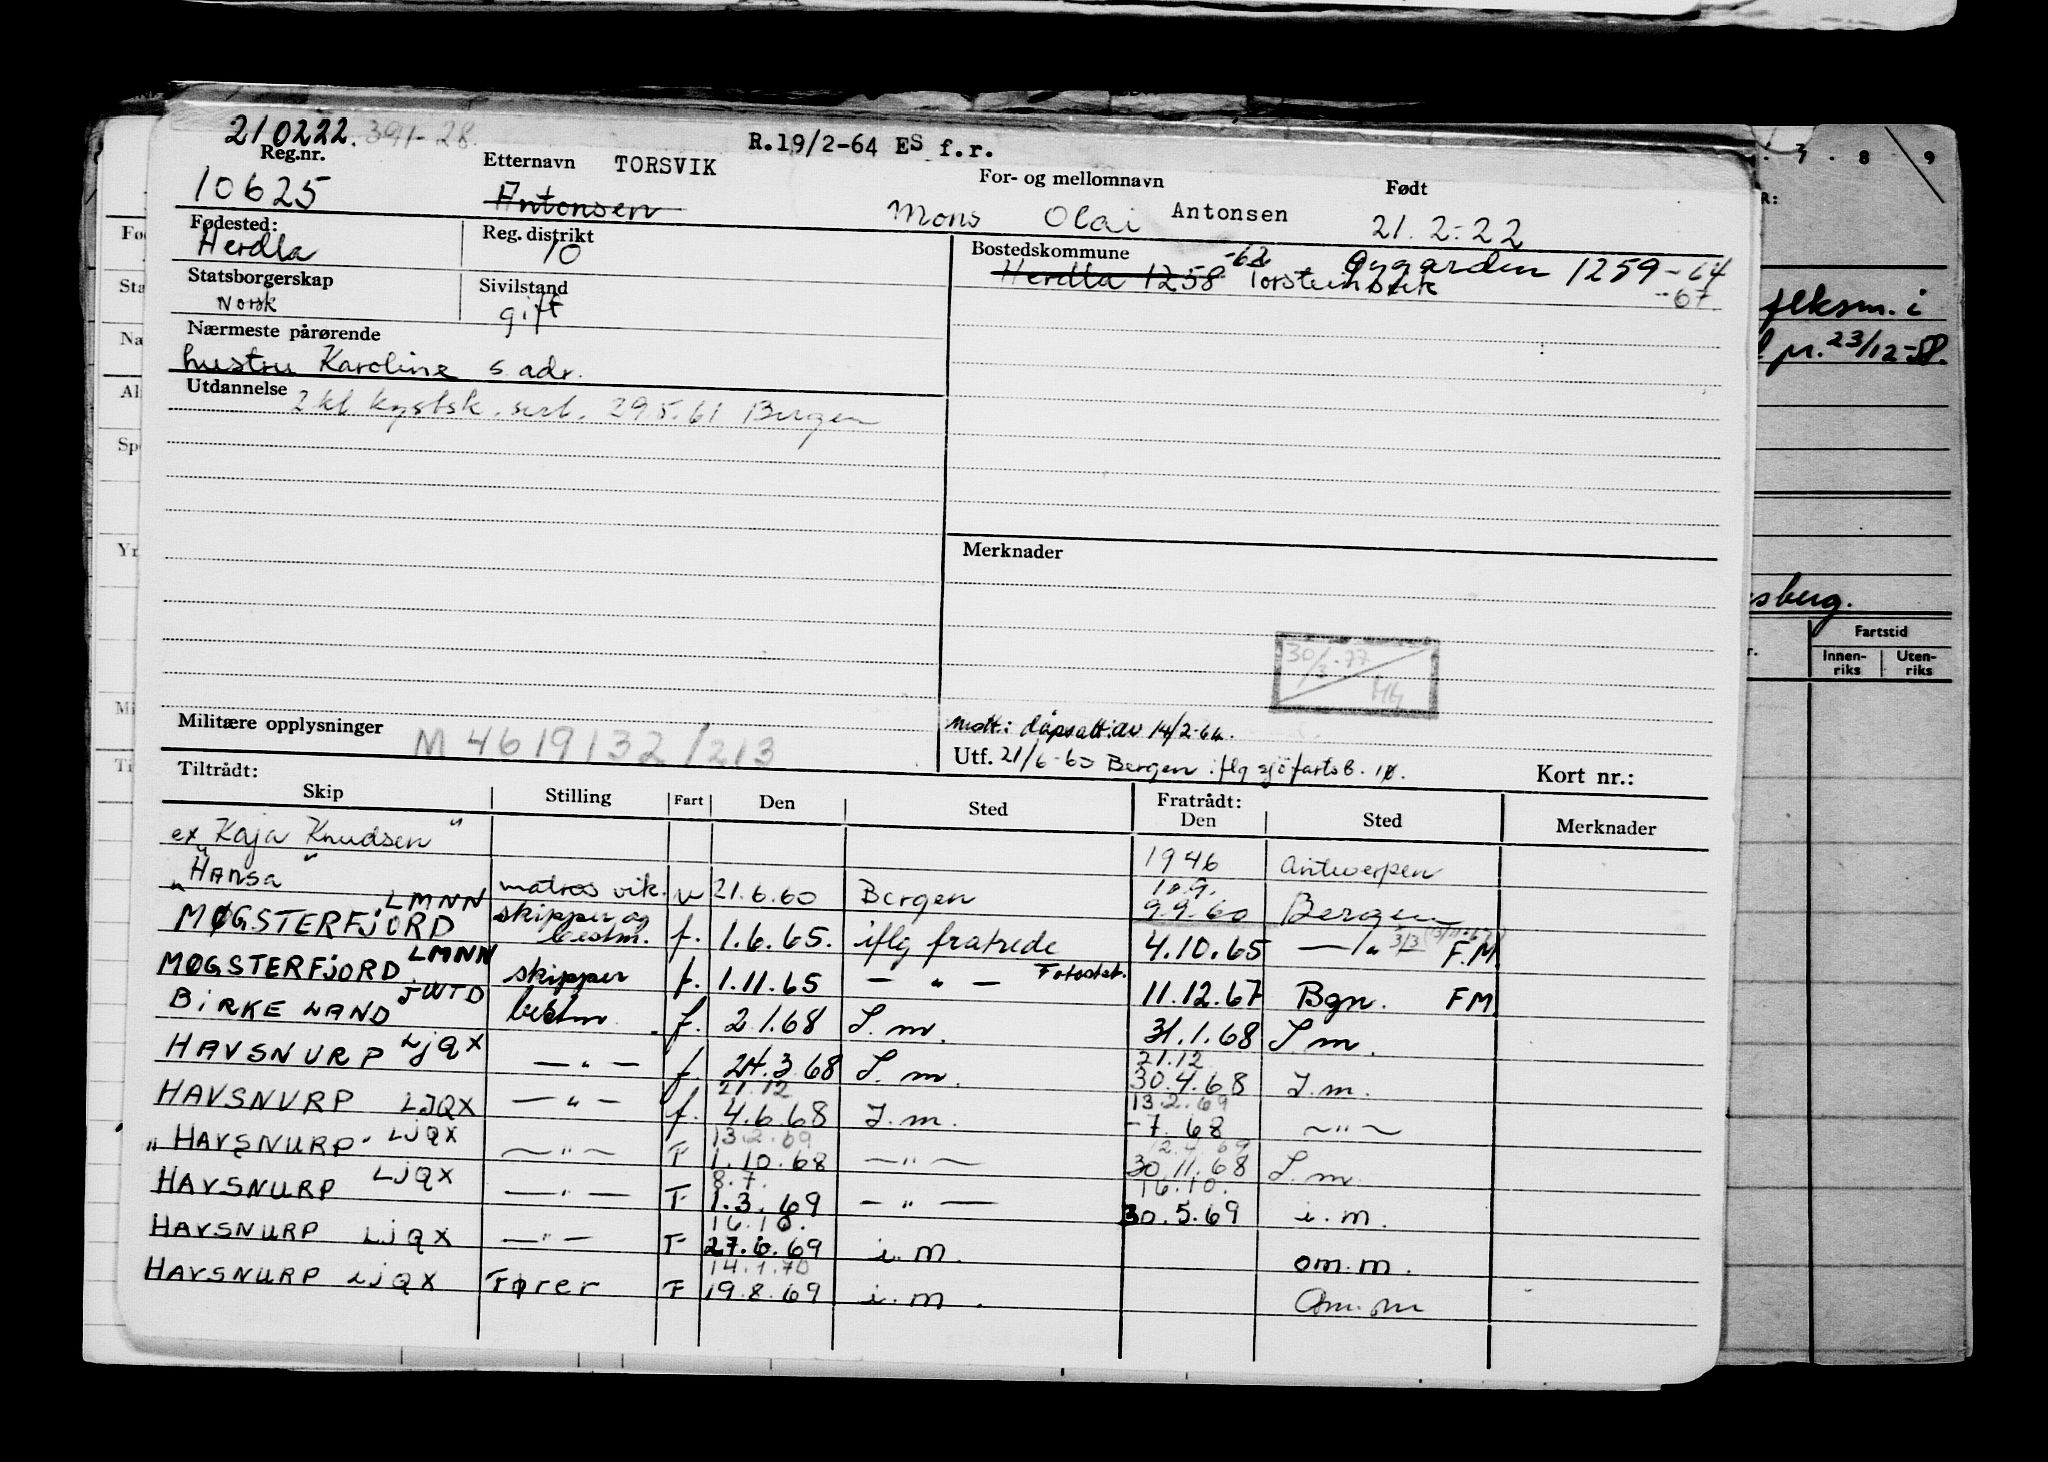 210222. 391-28.
R.19/2-64 ES f.r.
Reg.nr. 10625
Etternavn TORSVIK
Antonsen
For- og mellomnavn
Mons Olai Antonsen
Født
21.2.22
Fødested:
Herdla
Reg. distrikt
10
Bostedskommune
Herdla 1258 -62 Torsteinsvik
Øygarden 1259 -64
-67
Statsborgerskap
Norsk
Sivilstand
gift
Nærmeste pårørende
hustru Karoline s. adr.
Utdannelse
2 kl kystsk. sert. 29.5.61 Bergen
Merknader
30/3-77
Militære opplysninger M4619132/213
Mott.: dåpsatt. av 14/2-64.
Utf. 21/6-60 Bergen iflg sjøfartsb. 10.
Kort nr.:
Tiltrådt:
Skip Stilling Fart Den Sted Fratrådt: Den Sted Merknader
ex "Kaja Knudsen" 1946 Antwerpen
"Hansa" matros vik. u 21.6.60 Bergen 10.9. 9.9.60 Bergen
MØGSTERFJORD LMNN skipper og bestm. f. 1.6.65. iflg fratrede 4.10.65 — " 3/3 F.M.
MØGSTERFJORD LMNN skipper f. 1.11.65 — " — Fotostat. 11.12.67 Bgn. FM
BIRKELAND JWTD bestm. f. 2.1.68 I.m. 31.1.68 I.m.
HAVSNURP LJQX — " — f. 24.3.68 I.m. 21.12 30.4.68 I.m.
HAVSNURP LJQX — " — f. 21.12 4.6.68 I.m. 13.2.69 -7.68 — " —
"HAVSNURP" LJQX — " — F 13.2.69 1.10.68 — " — 30.11.68 I.m.
HAVSNURP LJQX — " — F 8.7. 1.3.69 — " — 16.10. 30.5.69 i.m.
HAVSNURP LJQX — " — F 16.10. 27.6.69 i.m. om.m.
HAVSNURP LJQX Fører F 14.1.70 19.8.69 i.m. Om.m
flksm. i
pr. 23/12-58.
sberg.
Fartstid
Innen-riks
Uten-riks
7 . 8 . 9